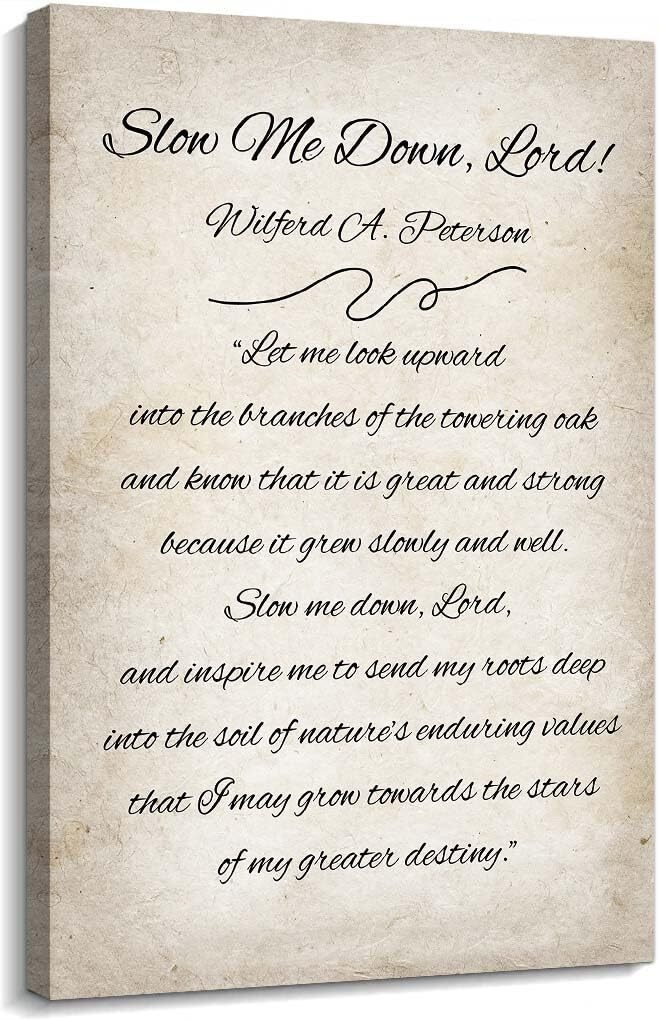 Slow Me Down, Lord!
Wilferd A. Peterson
“Let me look upward
into the branches of the towering oak
and know that it is great and strong
because it grew slowly and well.
Slow me down, Lord,
and inspire me to send my roots deep
into the soil of nature’s enduring values
that I may grow towards the stars
of my greater destiny.”